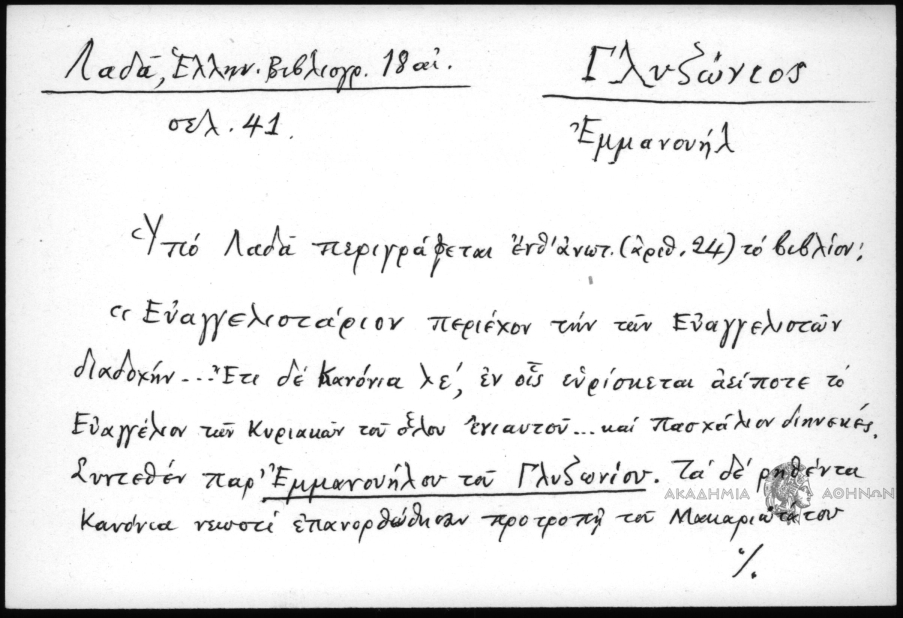 Λαδᾶ, Ἑλλην. Βιβλιογρ. 18 αἰ.
σελ. 41.
Γλυζώνιος
Ἐμμανουήλ
Ὑπό Λαδᾶ περιγράφεται ἐνθ' ἀνωτ. (ἀριθ. 24) τό βιβλίον:
"Εὐαγγελιστάριον περιέχον τήν τῶν Εὐαγγελιστῶν
διαδοχήν... Ἔτι δέ Κανόνια λε', ἐν οἷς εὑρίσκεται ἀείποτε τό
Εὐαγγέλιον τῶν Κυριακῶν τοῦ ὅλου ἐνιαυτοῦ... καί Πασχάλιον διηνεκές.
Συντεθέν παρ' Ἐμμανουήλου τοῦ Γλυζωνίου. Τά δέ ρηθέντα
Κανόνια νεωστί ἐπανορθώθησαν προτροπῇ τοῦ Μακαριωτάτου
./.
ΑΚΑΔΗΜΙΑ ΑΘΗΝΩΝ